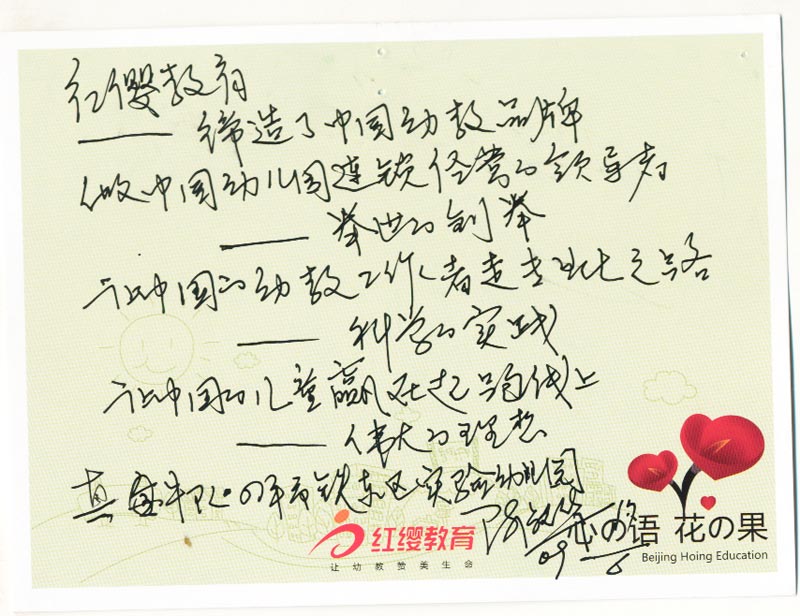 红缨教育
—— 缔造了中国幼教品牌
做中国幼儿园连锁经营的领导者
—— 举世的创举
让中国的幼教工作者走专业化之路
—— 科学的实践
让中国幼儿童赢在起跑线上
—— 伟大的理想
四平市铁东区实验幼儿园
09
6
红缨教育
让幼教赞美生命
恋の语 花の果
Beijing Hoing Education